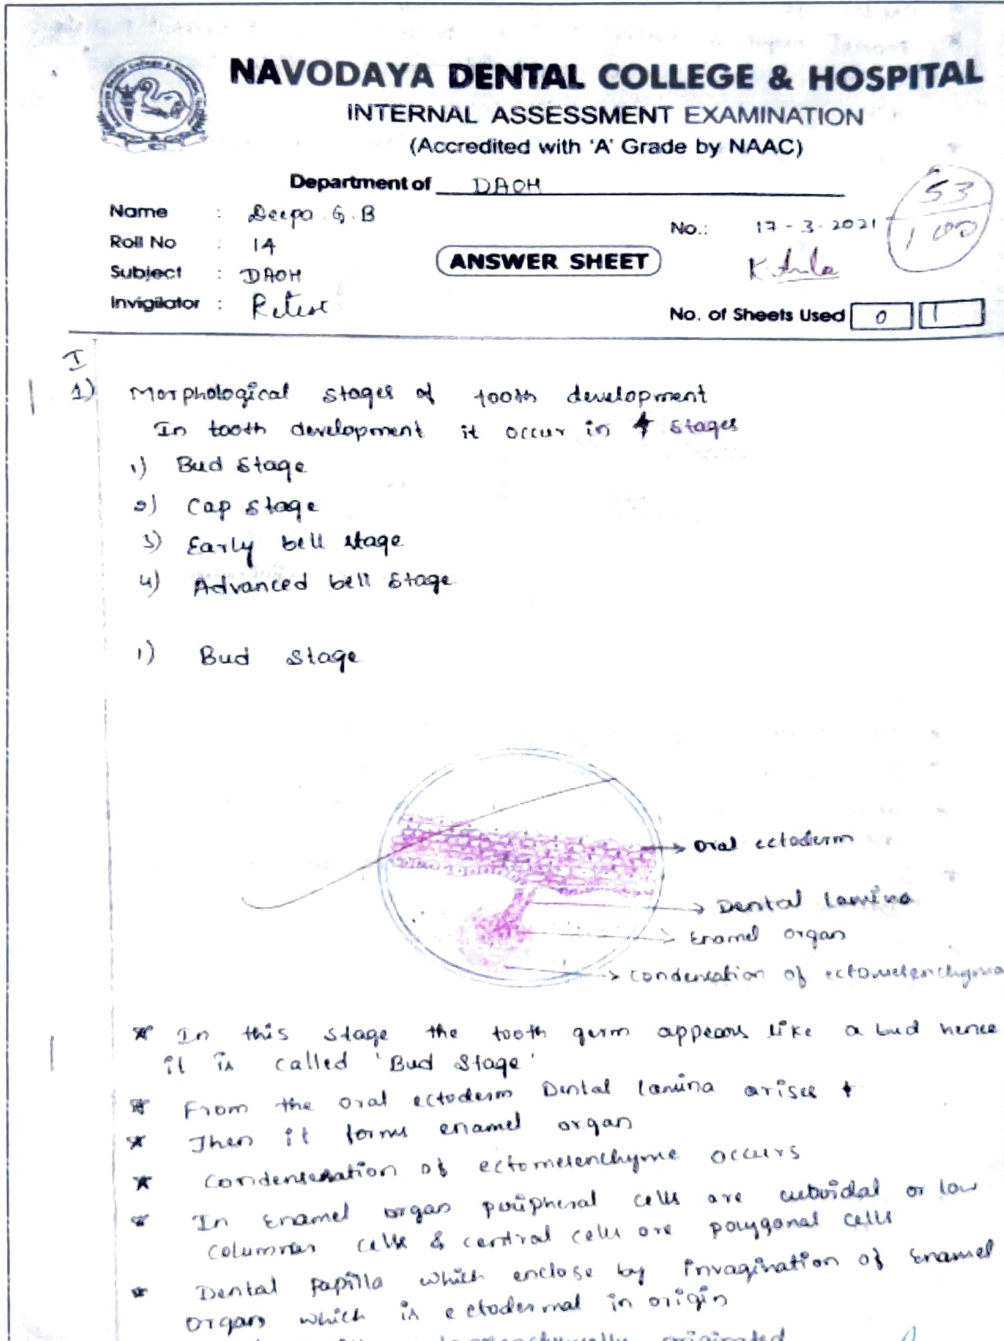 NAVODAYA DENTAL COLLEGE & HOSPITAL
INTERNAL ASSESSMENT EXAMINATION
(Accredited with 'A' Grade by NAAC)
Department of DAOH
53
100
Name : Deepa G.B
No.: 17-3-2021
Roll No : 14
ANSWER SHEET
Subject : DAOH
Invigilator : Retest
No. of Sheets Used 0 1
I
1) Morphological stages of tooth development
In tooth development it occur in 4 stages
1) Bud stage
2) Cap stage
3) Early bell stage
4) Advanced bell stage
1) Bud stage
Oral ectoderm
Dental lamina
Enamel organ
condensation of ectomesenchyma
* In this stage the tooth germ appears like a bud hence
it is called 'Bud Stage'
* From the oral ectoderm Dental lamina arises
* Then it forms enamel organ
* Condensation of ectomesenchyme occurs
* In Enamel organ peripheral cells are cuboidal or low
columnar cells & central cells are polygonal cells
* Dental Papilla which enclose by invagination of Enamel
organ which is ectodermal in origin
originated